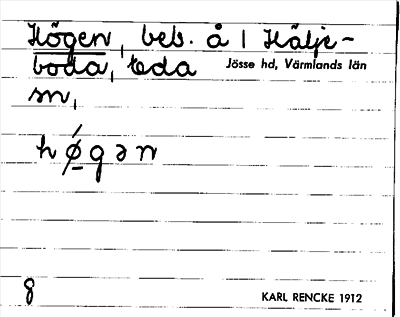 Högen, beb. å 1 Hälje-
boda, Eda Jösse hd, Värmlands län
sn,
hǿ̠gən
8
KARL RENCKE 1912